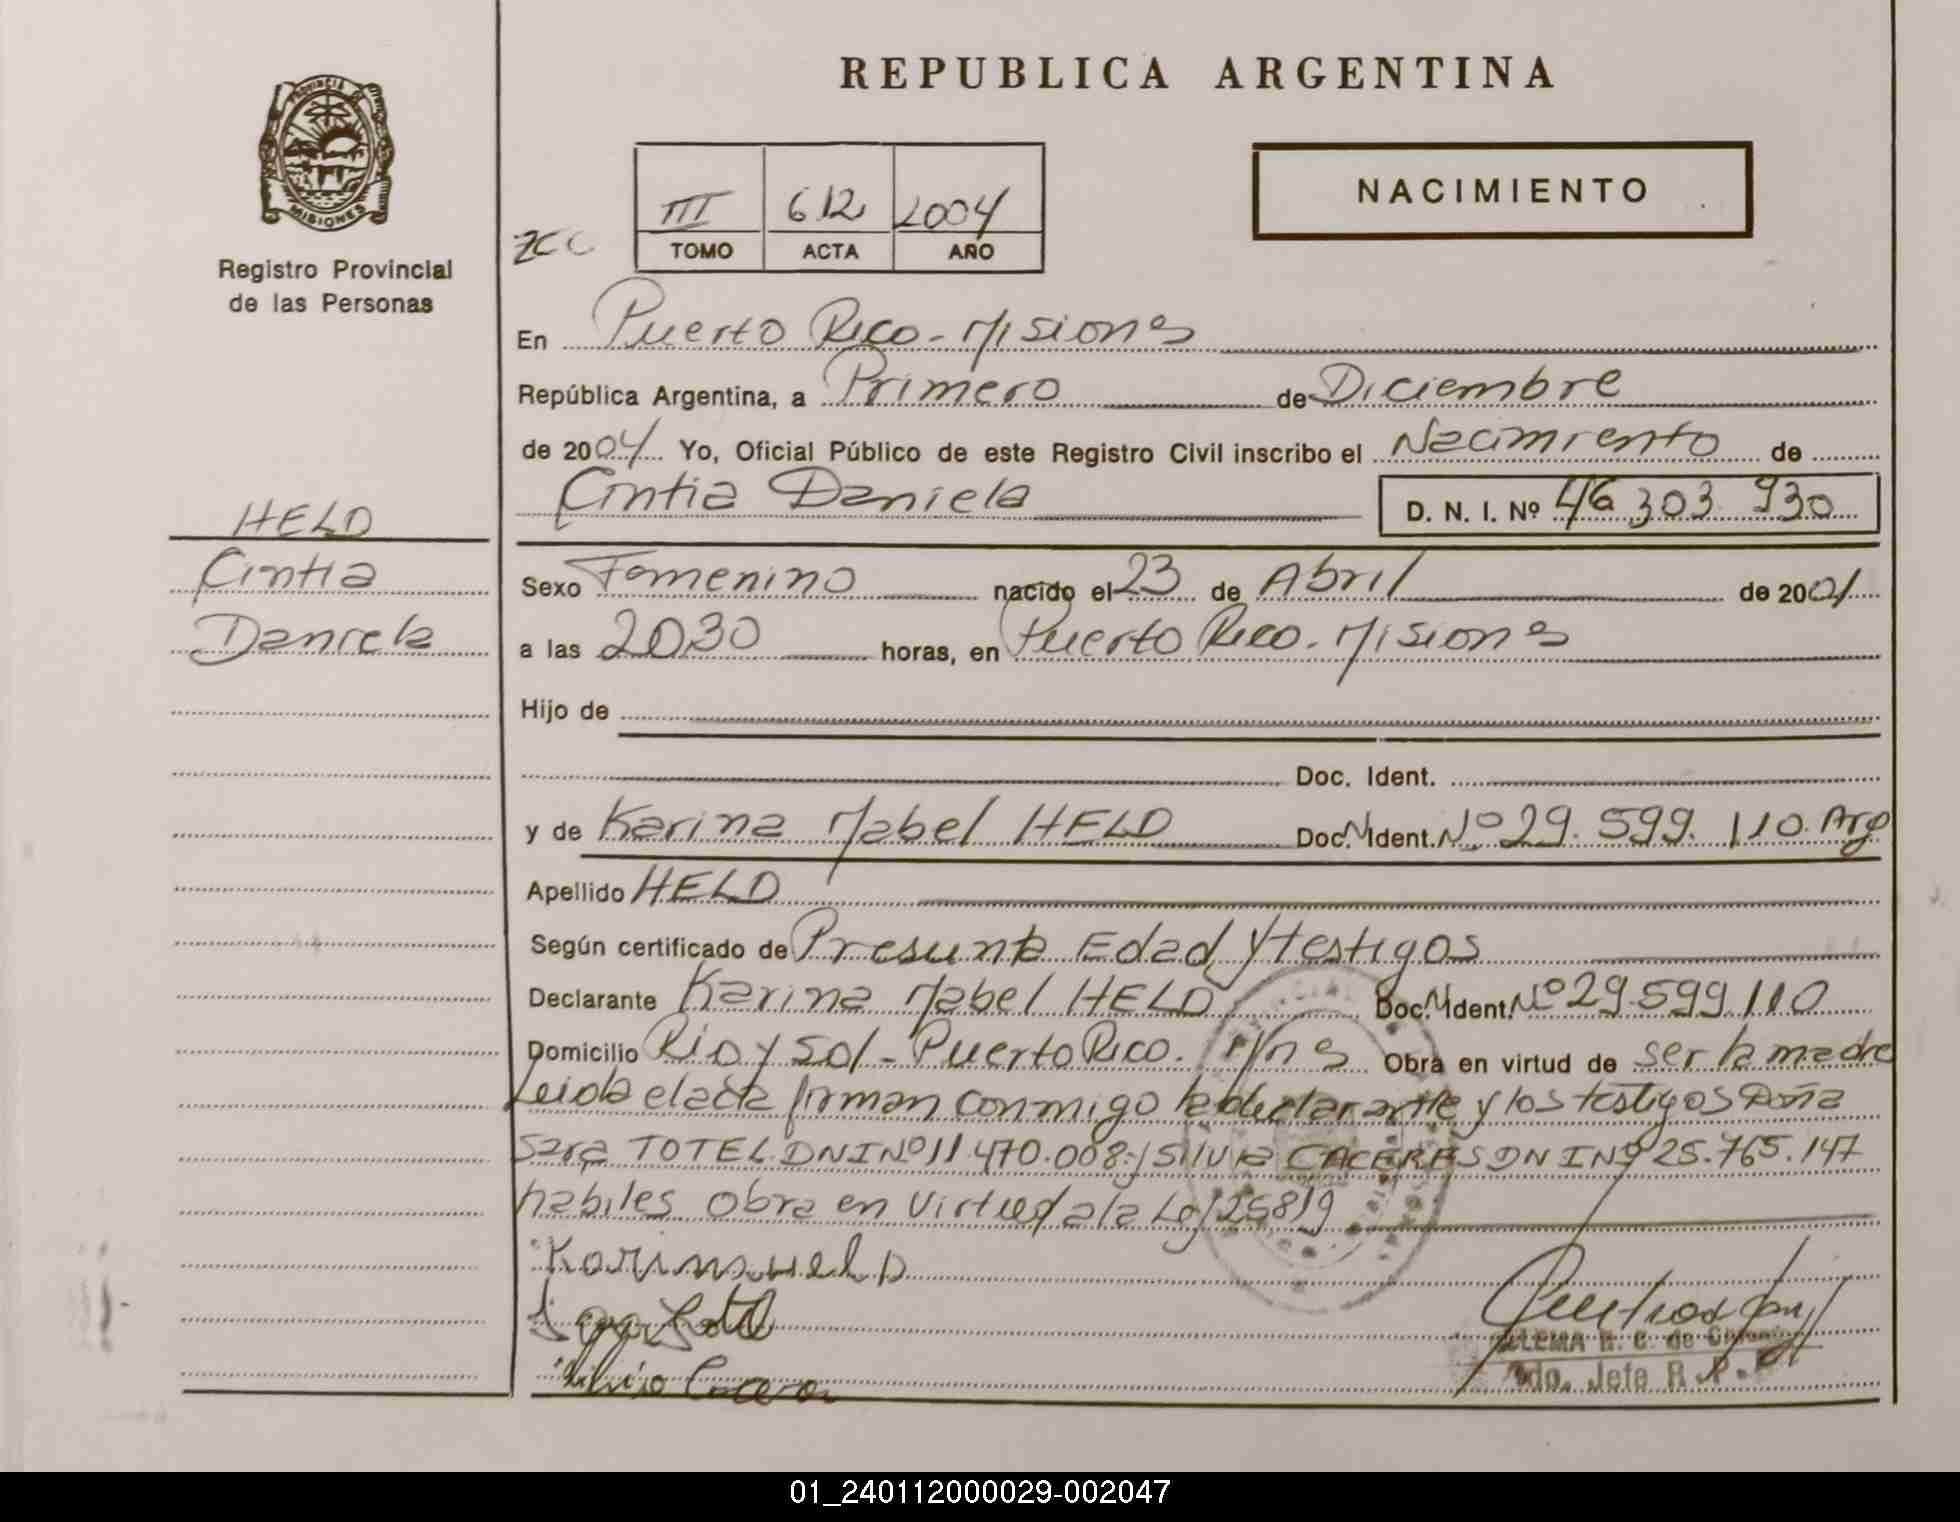 REPUBLICA ARGENTINA
PROVINCIA DE
MISIONES
Registro Provincial
de las Personas
III 612 2004
TOMO ACTA AÑO
NACIMIENTO
En Puerto Rico - Misiones
República Argentina, a Primero de Diciembre
de 2004 Yo, Oficial Público de este Registro Civil inscribo el Nacimiento de
Cintia Daniela D. N. I. Nº 46 303 930
HELD
Cintia
Daniela
Sexo Femenino nacido el 23 de Abril de 2001
a las 20,30 horas, en Puerto Rico. Misiones
Hijo de
Doc. Ident.
y de Karina Mabel HELD Doc. N Ident. Nº 29. 599. 110. Arg
Apellido HELD
Según certificado de Presunta Edad y testigos
Declarante Karina Mabel HELD Doc. N Ident. Nº 29.599.110
Domicilio Rio y Sol - Puerto Rico. Mnes Obra en virtud de ser la madre
Leida el acta firman conmigo la declarante y los testigos Doña
Sara TOTEL DNI Nº 11.470.008 y Silvia CACERES DNI Nº 25.765.147
habiles Obra en Virtud a la Ley 25819
Karina Held
Silvia Caceres
R. C. de
Jefe R. P.
01_240112000029-002047